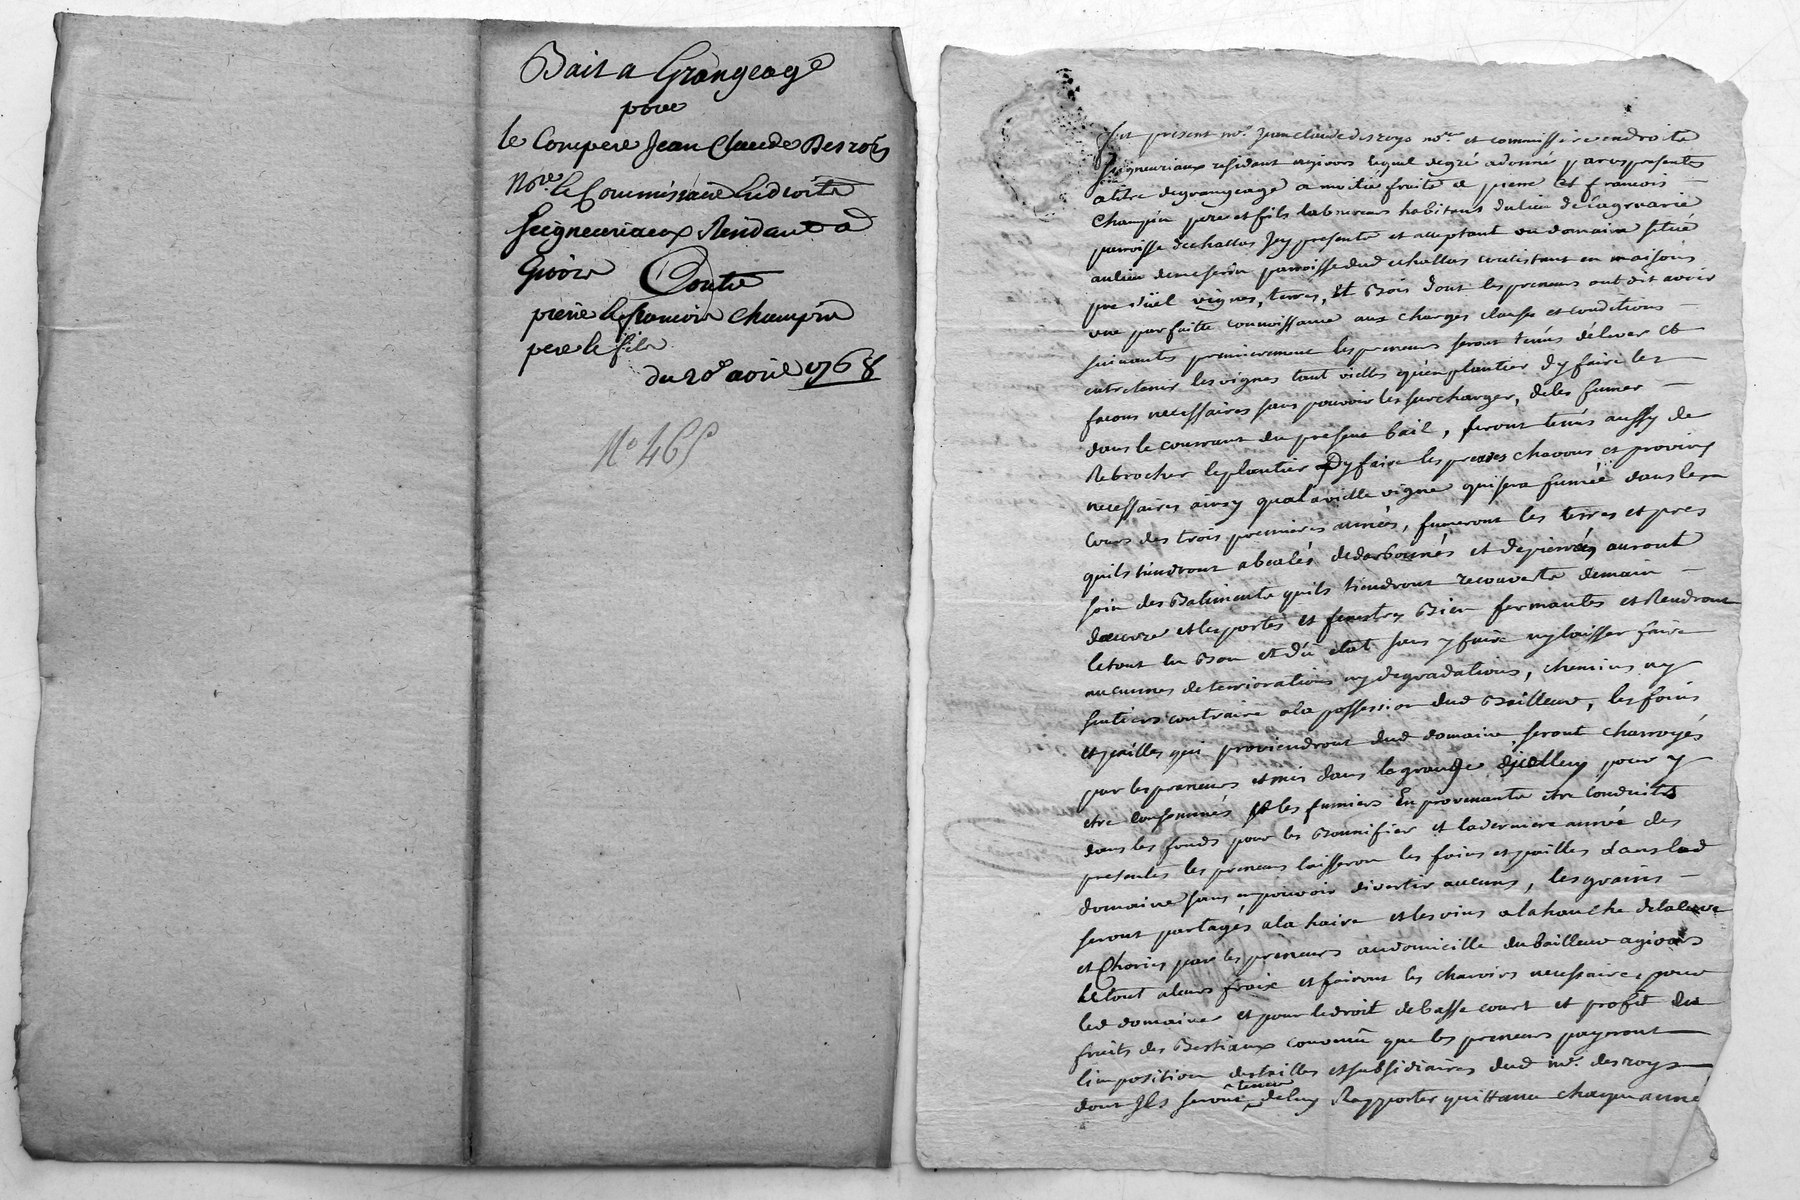 Bail a Grangeage
pour
le Compere Jean Claude Desroÿs
No.re & Commissaire En droits
Seigneuriaux Residant a
Givors Contre
pierre & francois Champin
pere & fils
du 20.e avril 1768
N° 465
fut présent m.e Jean Claude desroys no.re et commissaire en droits
seigneuriaux residant agivors lequel degré adonné par cespresentes
atitre degrangeage a moitié fruits a pierre et francois
Champin pere et fils laboureurs habitans dulieu de
parroisse dechallas Icy presents et acceptant un domaine situé
aulieu de parroisse dud echallas consistant en maisons
pré vignes, terres, et Bois dont lespreneurs ont dit avoir
une parfaitte connoissance aux charges clause et conditions
suivantes premierement lespreneurs seront tenus délever et
entretenir lesvignes tant vielles qu'en plantier dy faire les
facons necessaires sans pouvoir les surcharger, deles fumer
dans le courrant du present bail, seront tenus aussy de
Rebrocher leplantier Dy faire les chavons et provins
necessaires ainsy qualavielle vigne quisera fumée dansles
cours des trois premieres années, fumeront les terres et prés
quils tiendront et depierrées auront
soin des Batiments quils tiendront recouverts demain
dœuvre et les portes et fenestres Bien fermantes et Rendront
letout En Bon et dû etat sans y faire nylaisser faire
aucunes deterriorations ny degradations, chemins ny
sentiers contraire ala possession dud Bailleur, les foins
et pailles qui proviendront dud domaine seront charroyés
par lespreneurs et mis dans lagrange pour y
etre consommés et les fumiers En provenants etre conduits
dans les fonds pour les Bonnifier et laderniere année des
presentes les preneurs laisseron les foins et pailles dansled
domaine sans enpouvoir divertir aucuns, lesgrains
seront partagés ala haire et lesvins alahanche delacuve
et Choriés par les preneurs audomicille dubailleur agivors
letout aleurs fraix et fairont les charrois necessaires pour
led domaine et pour ledroit debasse court et profit des
fruits des Bestiaux convenu que les preneurs payeront
limposition destailles etsubsidiaires dud m.e desroys
dont Ils seront tenus deluy Rapporter quittance chaque anné